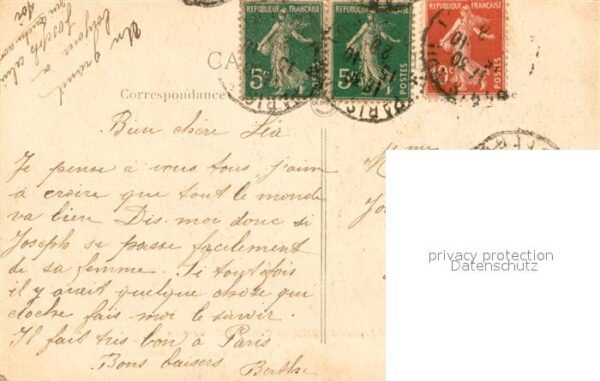 Un grand
bonjour
Joseph
RÉPUBLIQUE FRANÇAISE
RÉPUBLIQUE FRANÇAISE
RÉPUBLIQUE FRANÇAISE
5c
5c
10c
POSTES
POSTES
PARIS
PARIS
Correspondance
Bien chère Léa
Je pense à vous tous j'aim
à croire que tout le monde
va bien Dis-moi donc si
Joseph se passe facilement
de sa femme. Si toutefois
il y avait quelque chose qui
cloche fais moi le savoir.
Il fait très bon à Paris
Bons baisers
Berthe
privacy protection
Datenschutz